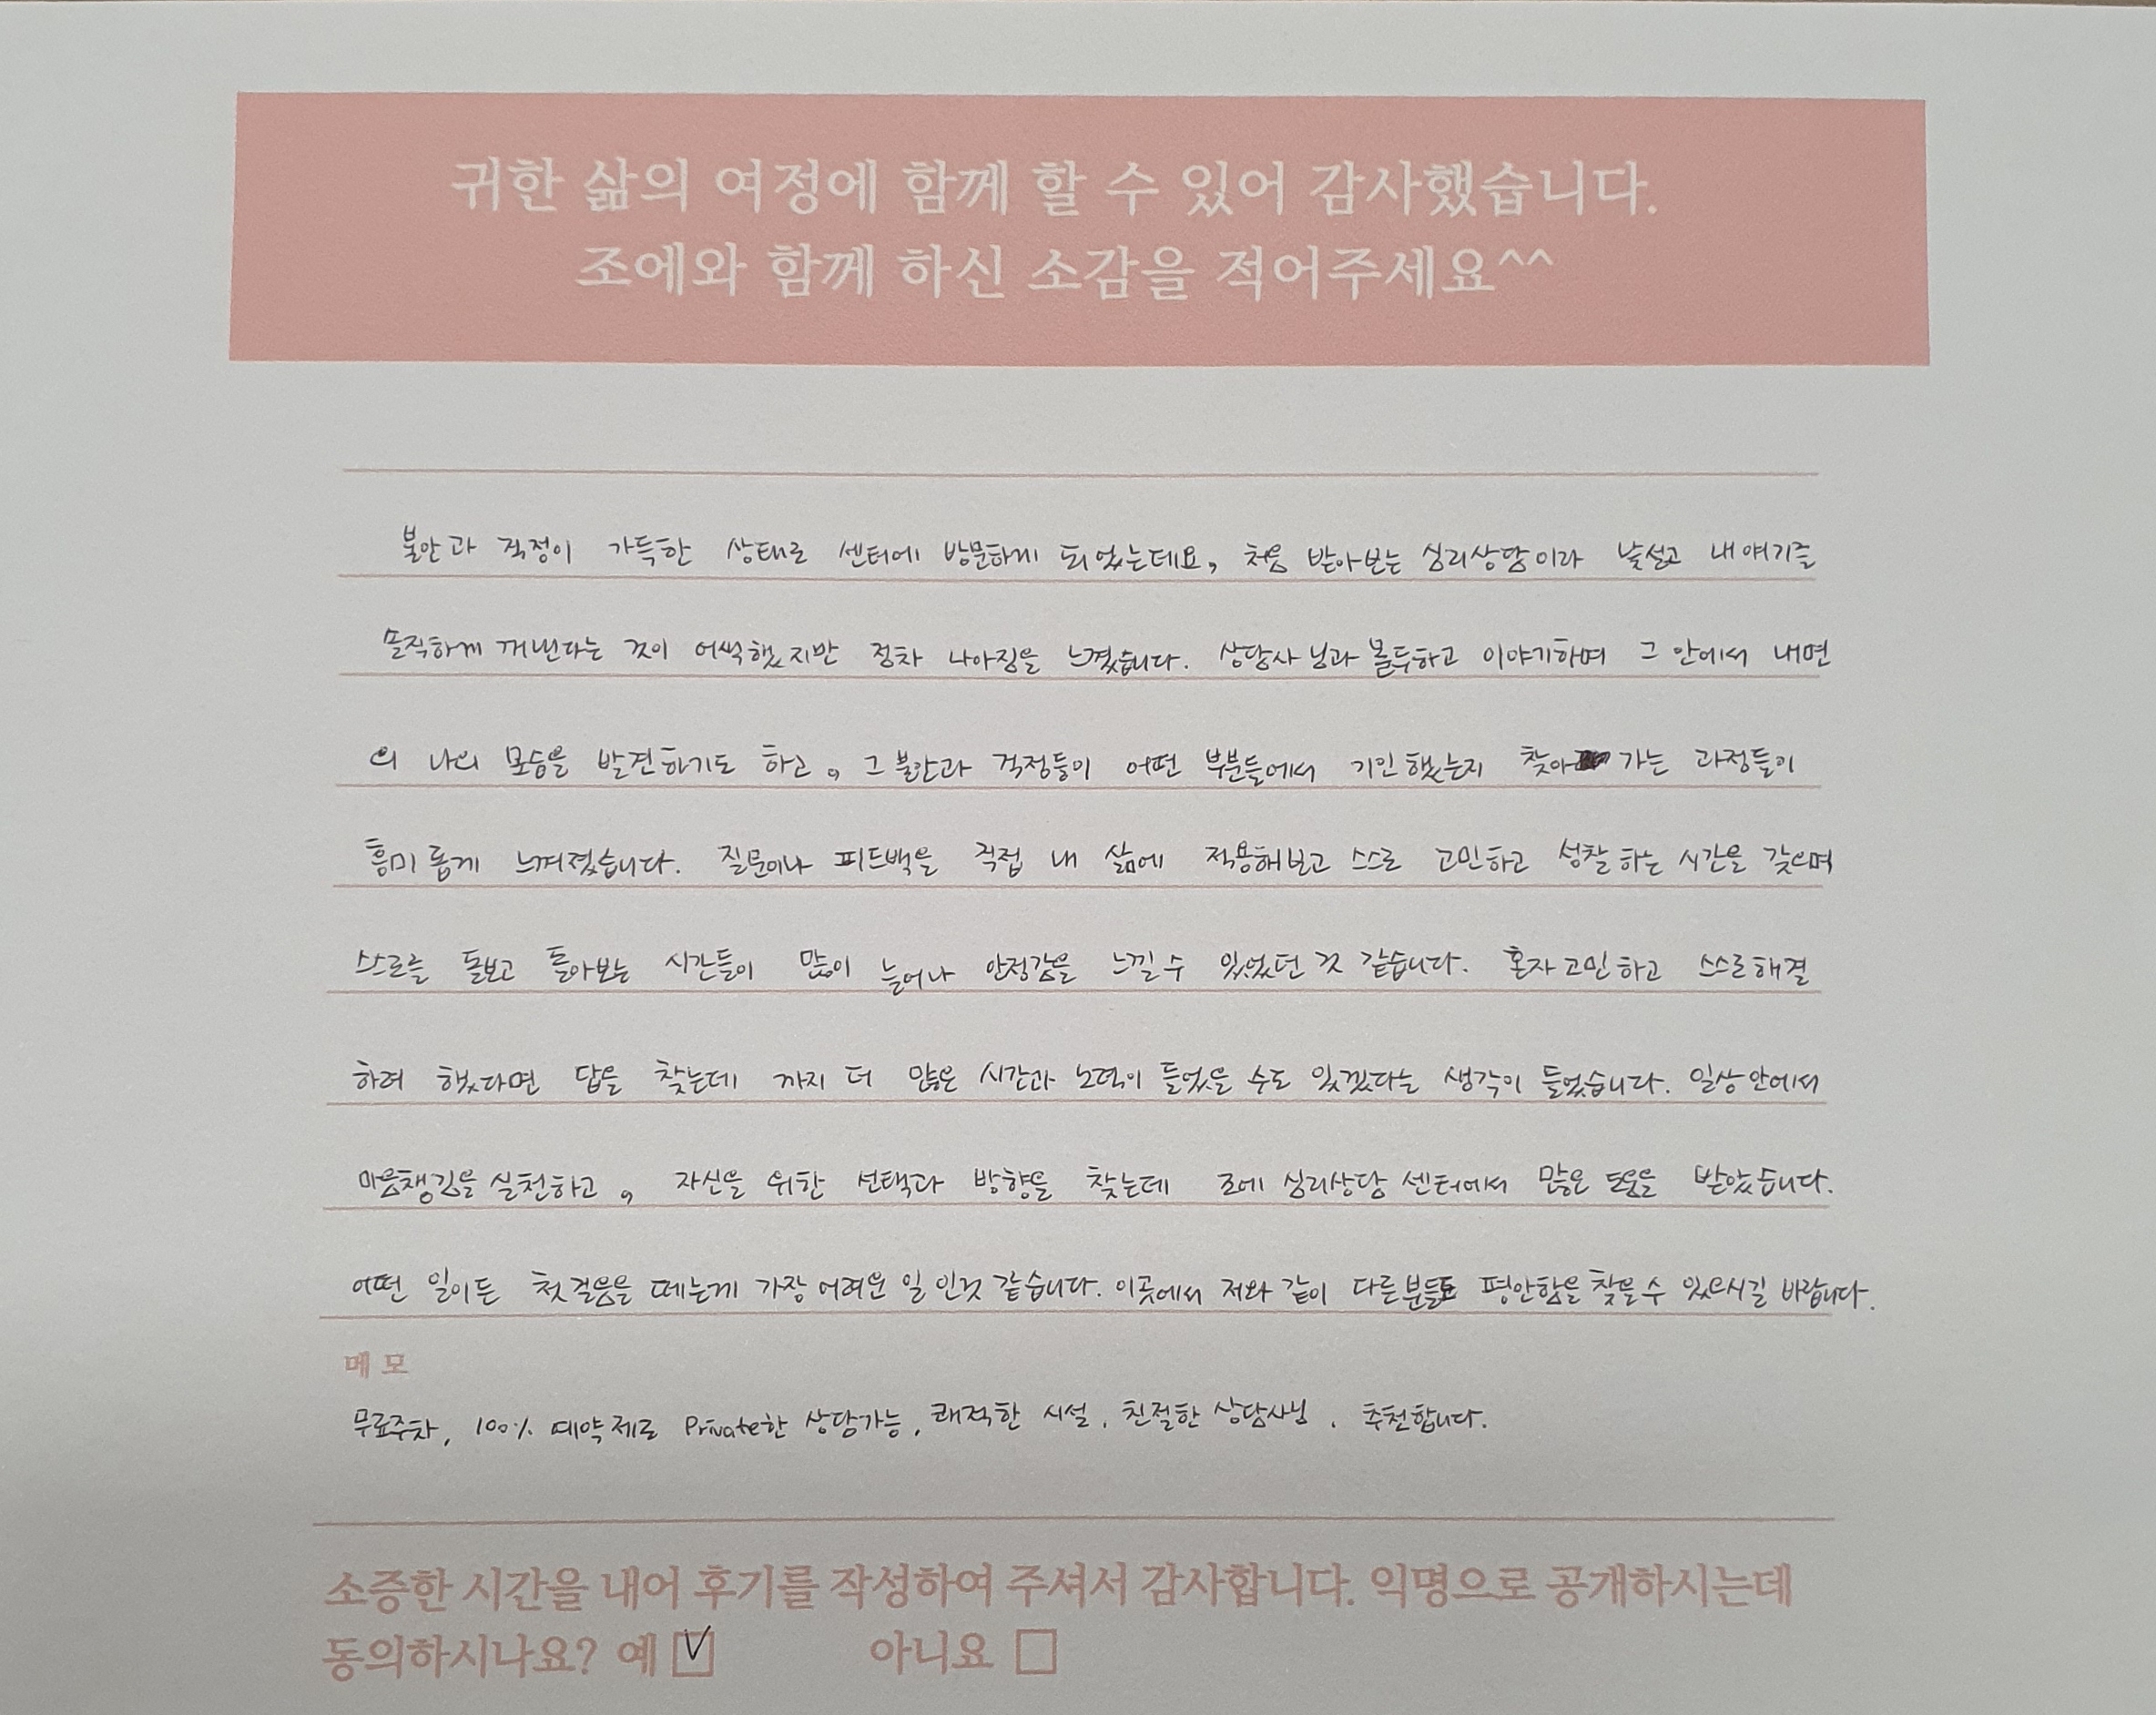 귀한 삶의 여정에 함께 할 수 있어 감사했습니다.
조에와 함께 하신 소감을 적어주세요^^
불안과 걱정이 가득한 상태로 센터에 방문하게 되었는데요, 처음 받아보는 심리상담이라 낯설고 내 얘기를
솔직하게 꺼낸다는 것이 어색했지만 점차 나아짐을 느꼈습니다. 상담사님과 몰두하고 이야기하며 그 안에서 내면
의 나의 모습을 발견하기도 하고, 그 불안과 걱정들이 어떤 부분들에서 기인했는지 찾아 가는 과정들이
흥미롭게 느껴졌습니다. 질문이나 피드백을 직접 내 삶에 적용해보고 스스로 고민하고 성찰하는 시간을 갖으며
스스로를 돌보고 돌아보는 시간들이 많이 늘어나 안정감을 느낄 수 있었던 것 같습니다. 혼자 고민하고 스스로 해결
하려 했다면 답을 찾는데 까지 더 많은 시간과 노력이 들었을 수도 있겠다는 생각이 들었습니다. 일상 안에서
마음챙김을 실천하고, 자신을 위한 선택과 방향을 찾는데 조에 심리상담 센터에서 많은 도움을 받았습니다.
어떤 일이든 첫 걸음을 떼는게 가장 어려운 일 인것 같습니다. 이곳에서 저와 같이 다른 분들도 평안함을 찾을 수 있으시길 바랍니다.
메모
무료주차, 100% 예약제로 Private한 상담가능, 쾌적한 시설, 친절한 상담사님, 추천합니다.
소중한 시간을 내어 후기를 작성하여 주셔서 감사합니다. 익명으로 공개하시는데
동의하시나요? 예 ☑ 아니요 ☐